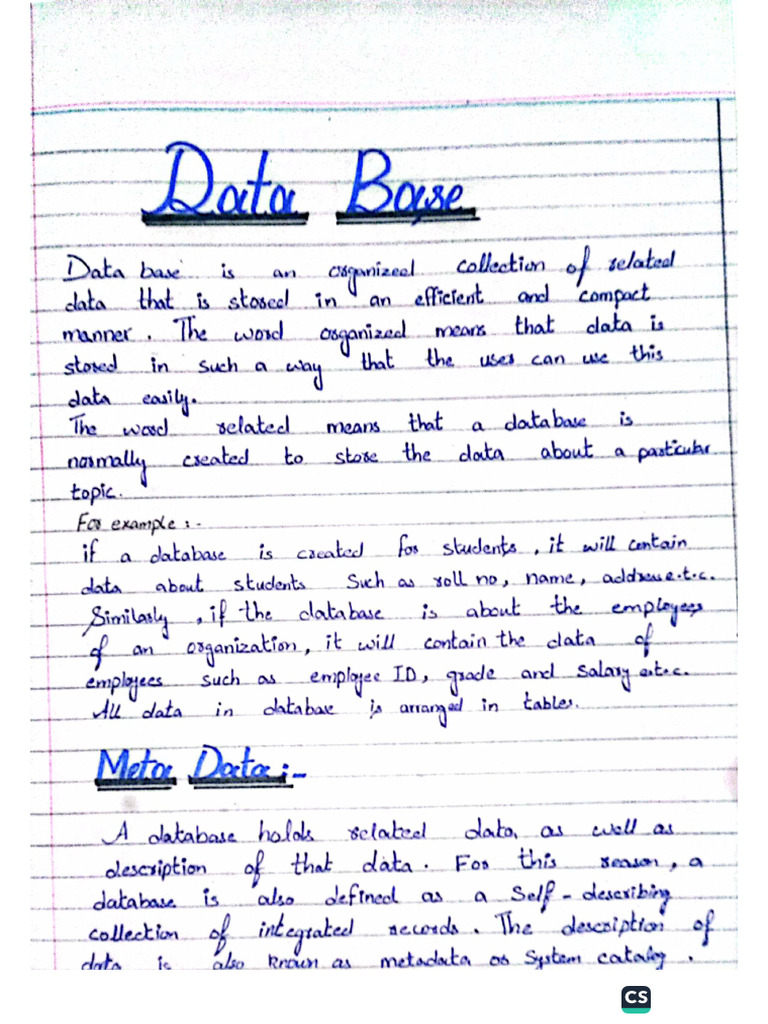 Data Base
Data base is an organized collection of related
data that is stored in an efficient and compact
manner. The word organized means that data is
stored in such a way that the user can use this
data easily.
The word related means that a database is
normally created to store the data about a particular
topic.
For example :-
if a database is created for students, it will contain
data about students Such as roll no, name, address e.t.c.
Similarly, if the database is about the employees
of an organization, it will contain the data of
employees such as employee ID, grade and Salary e.t.c.
All data in database is arranged in tables.
Meta Data :-
A database holds related data, as well as
description of that data. For this reason, a
database is also defined as a Self-describing
collection of integrated records. The description of
data is also known as metadata or System catalog.
CS